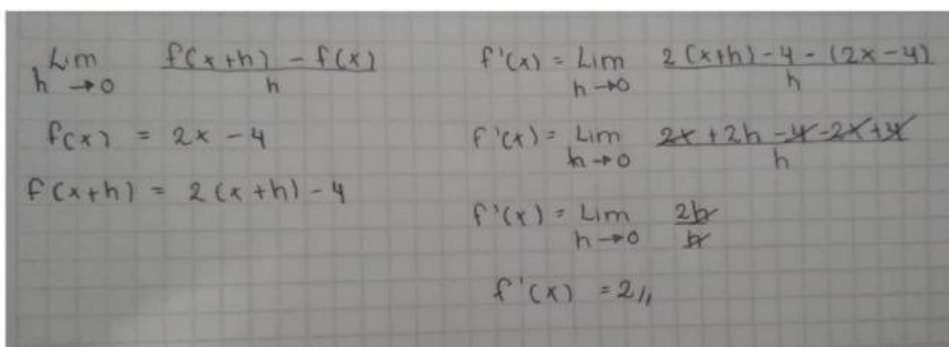 Lim h→0 f(x+h) - f(x) / h
f(x) = 2x - 4
f(x+h) = 2(x+h) - 4
f'(x) = Lim h→0 2(x+h) - 4 - (2x - 4) / h
f'(x) = Lim h→0 2x + 2h - 4 - 2x + 4 / h
f'(x) = Lim h→0 2h / h
f'(x) = 2//